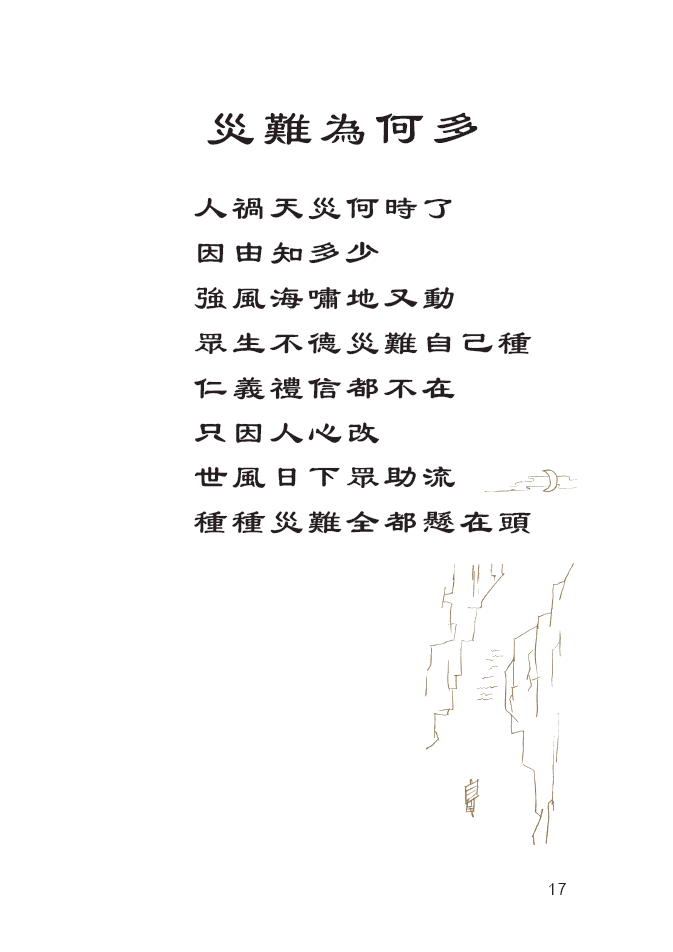 災難為何多
人禍天災何時了
因由知多少
強風海嘯地又動
眾生不德災難自己種
仁義禮信都不在
只因人心改
世風日下眾助流
種種災難全都懸在頭
17